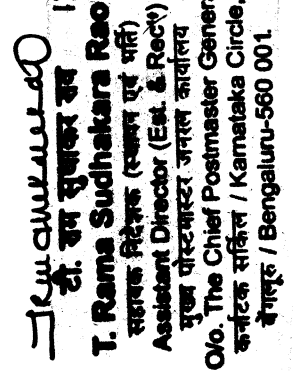 टी. राम सुधाकर राव
T. Rama Sudhakara Rao
सहायक निदेशक (स्थापना एवं भर्ति)
Assistant Director (Est. & Rectt)
मुख्य पोस्टमास्टर जनरल कार्यालय
O/o. The Chief Postmaster Gener
कर्नाटक सर्किल / Karnataka Circle,
बेंगलूरु / Bengaluru-560 001.